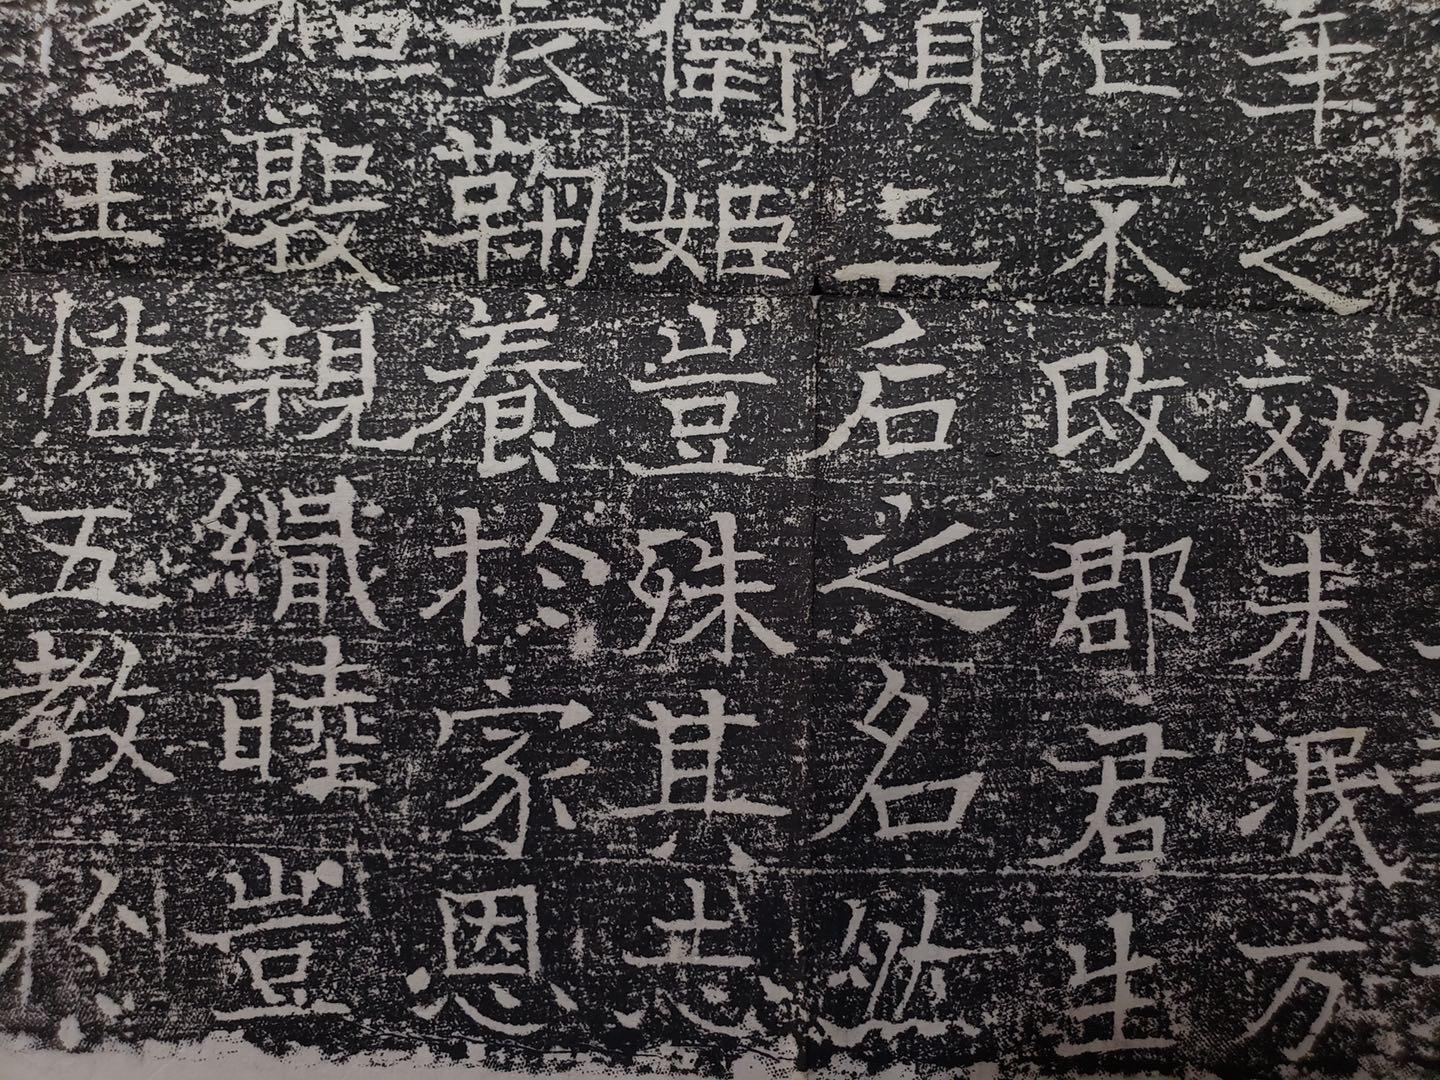 年之効未泯万
亡不改郡君生
湏三后之名然
衛姬豈殊其志
長鞠養於家恩
聚親緝睦豈
王憣五教於